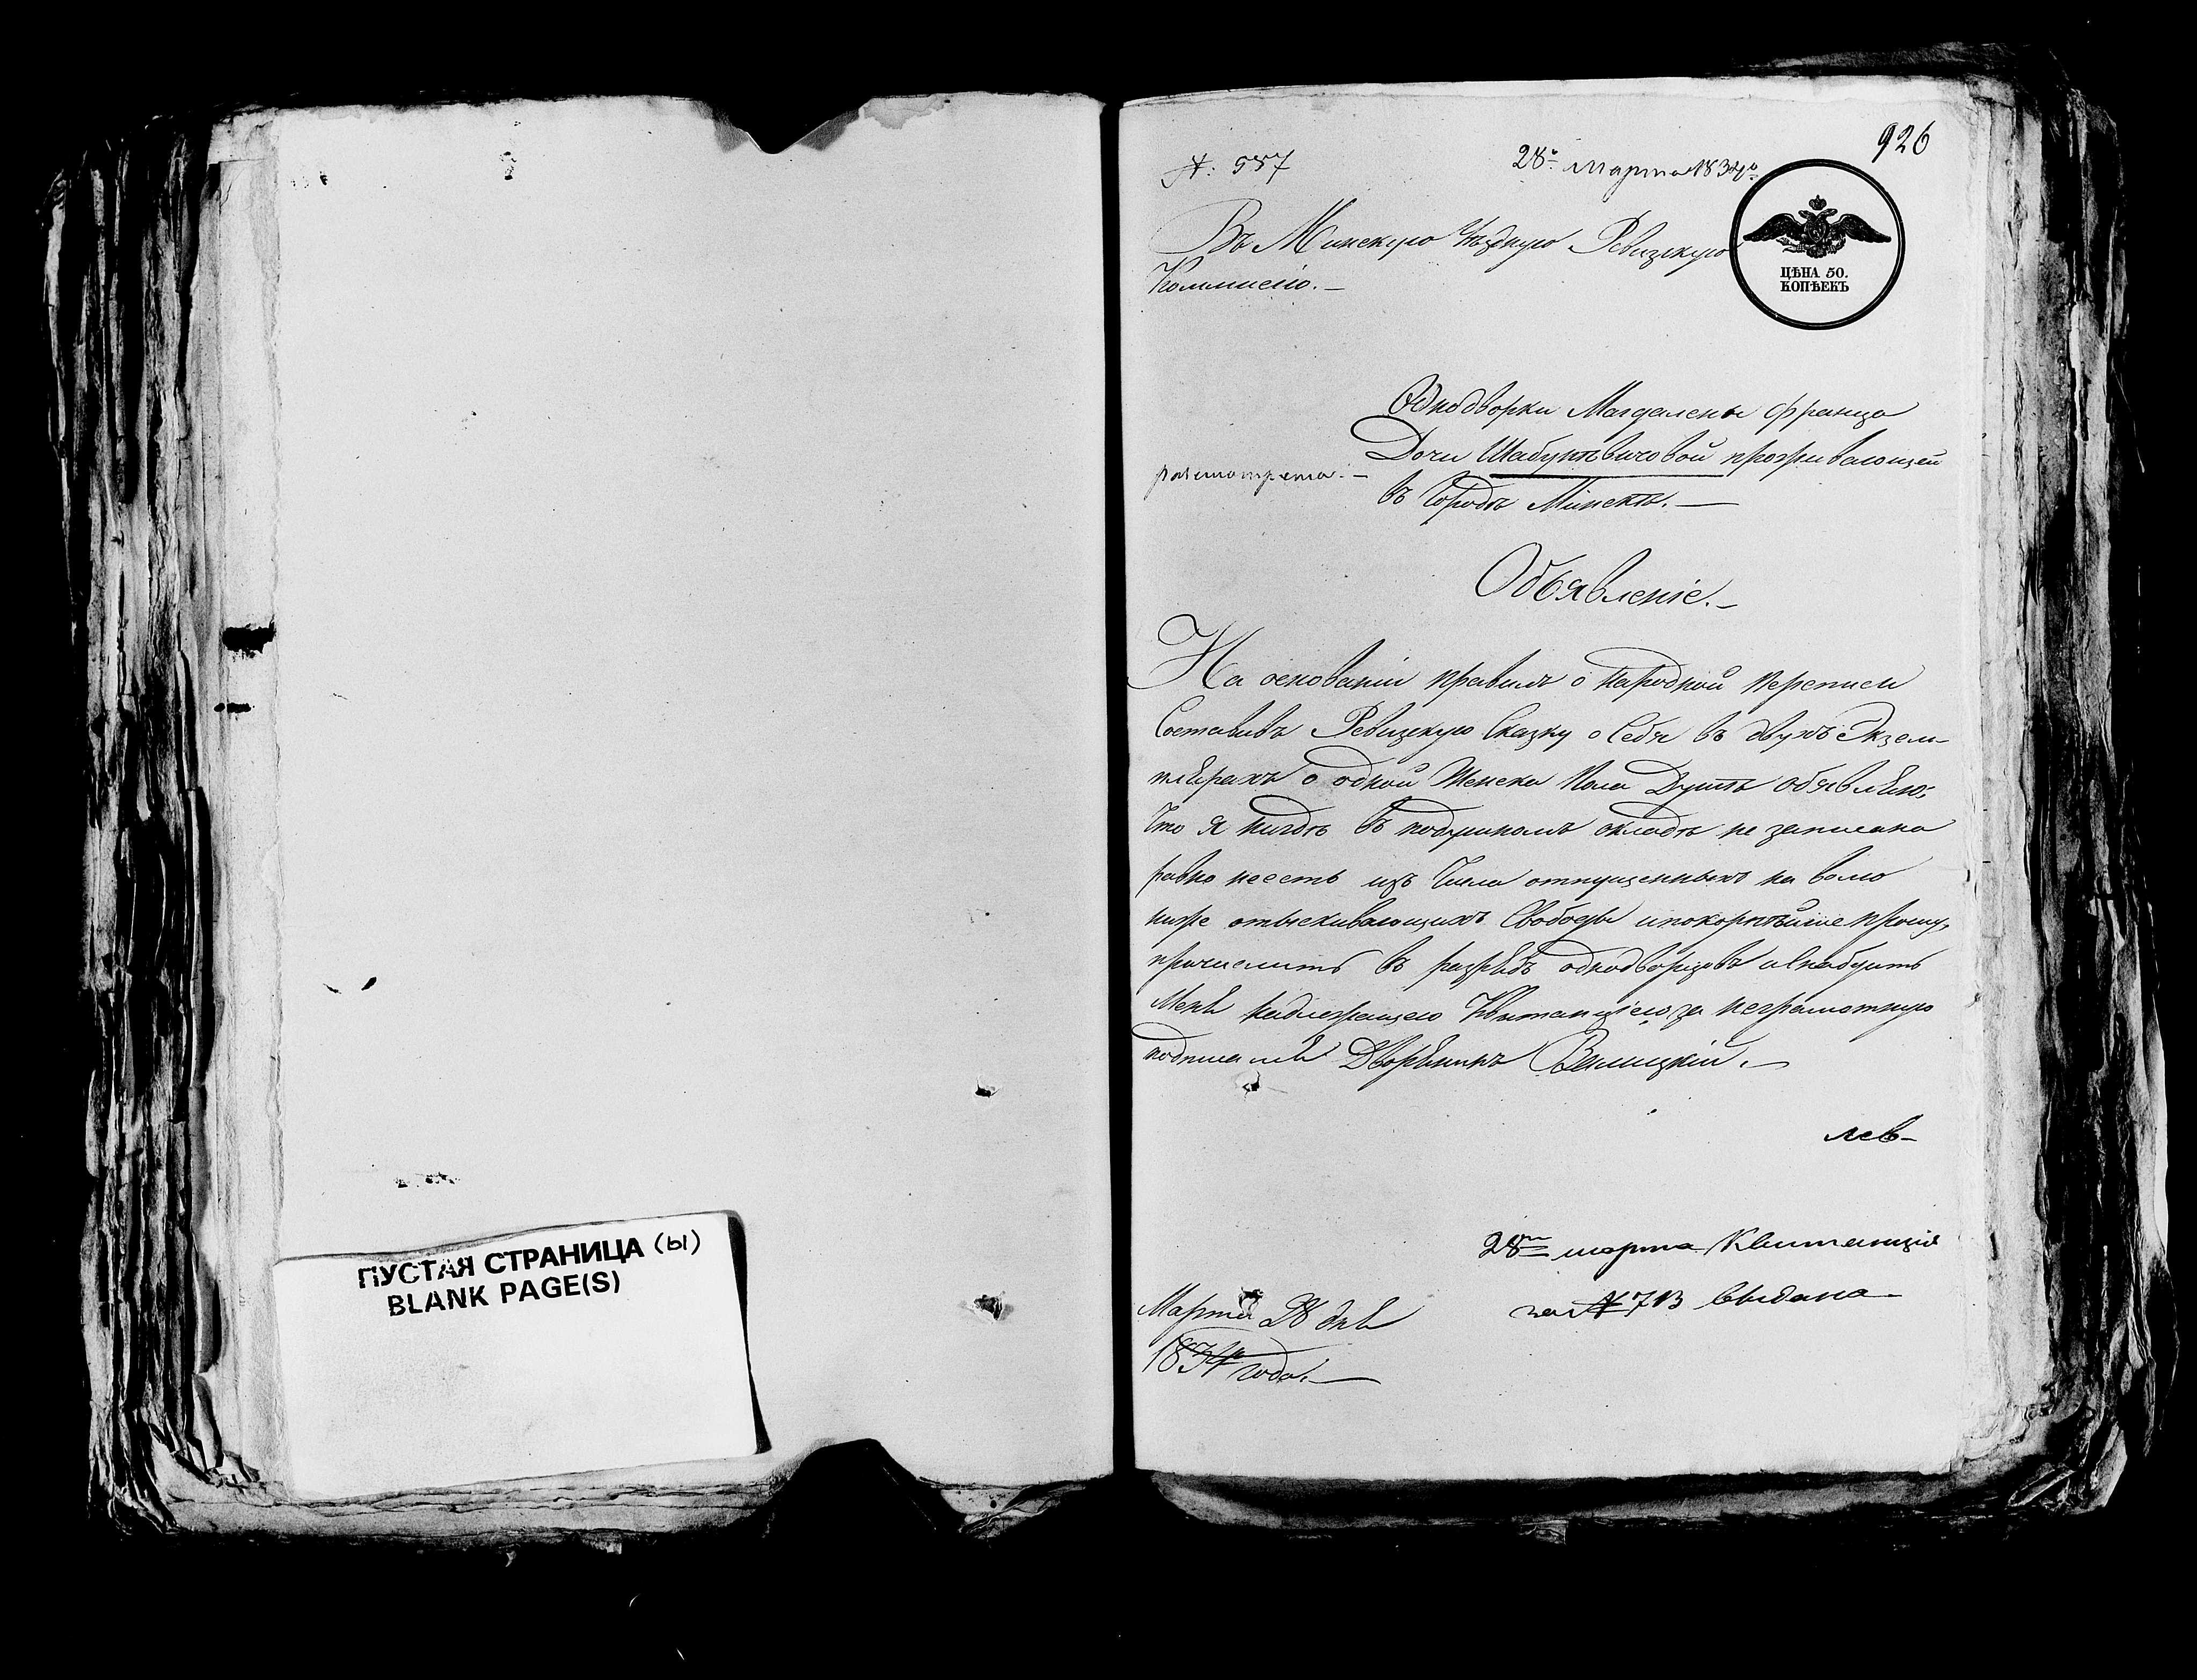 ПУСТАЯ СТРАНИЦА (Ы)
BLANK PAGE(S)
926
28го Марта 1834го
№: 557
Въ Минскую Уѣздную Ревизкую
Коммисію.—
ЦѢНА 50.
КОПѢЕКЪ
Однодворки Магдалены Франца
Дочи Шабуневичовой проживающей
разсмотрена.—
въ Городѣ Минскѣ.—
Объявленіе.—
На основаніи правилъ о народной переписи
Составивъ Ревизскую Сказку о Себѣ въ двухъ Экзем-
плярахъ о одной Женска Пола Душѣ объявляю,
что я нигдѣ въ подушномъ окладѣ не записана
равно неесть изъ Числа отпущенныхъ на волю
ниже отыскивающихъ Свободы ипокорнѣйше прошу,
причислить въ разрядъ однодворцовъ иснабдить
Меня надлежащею Квитанціею, за неграмотную
подписался Дворянинъ
28го марта Квитанція
за № 713 выдана
Марта 28 дня
1834го года.—